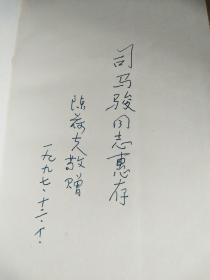 司马骏同志惠存
陈荔克敬赠
一九九七·十二·十·